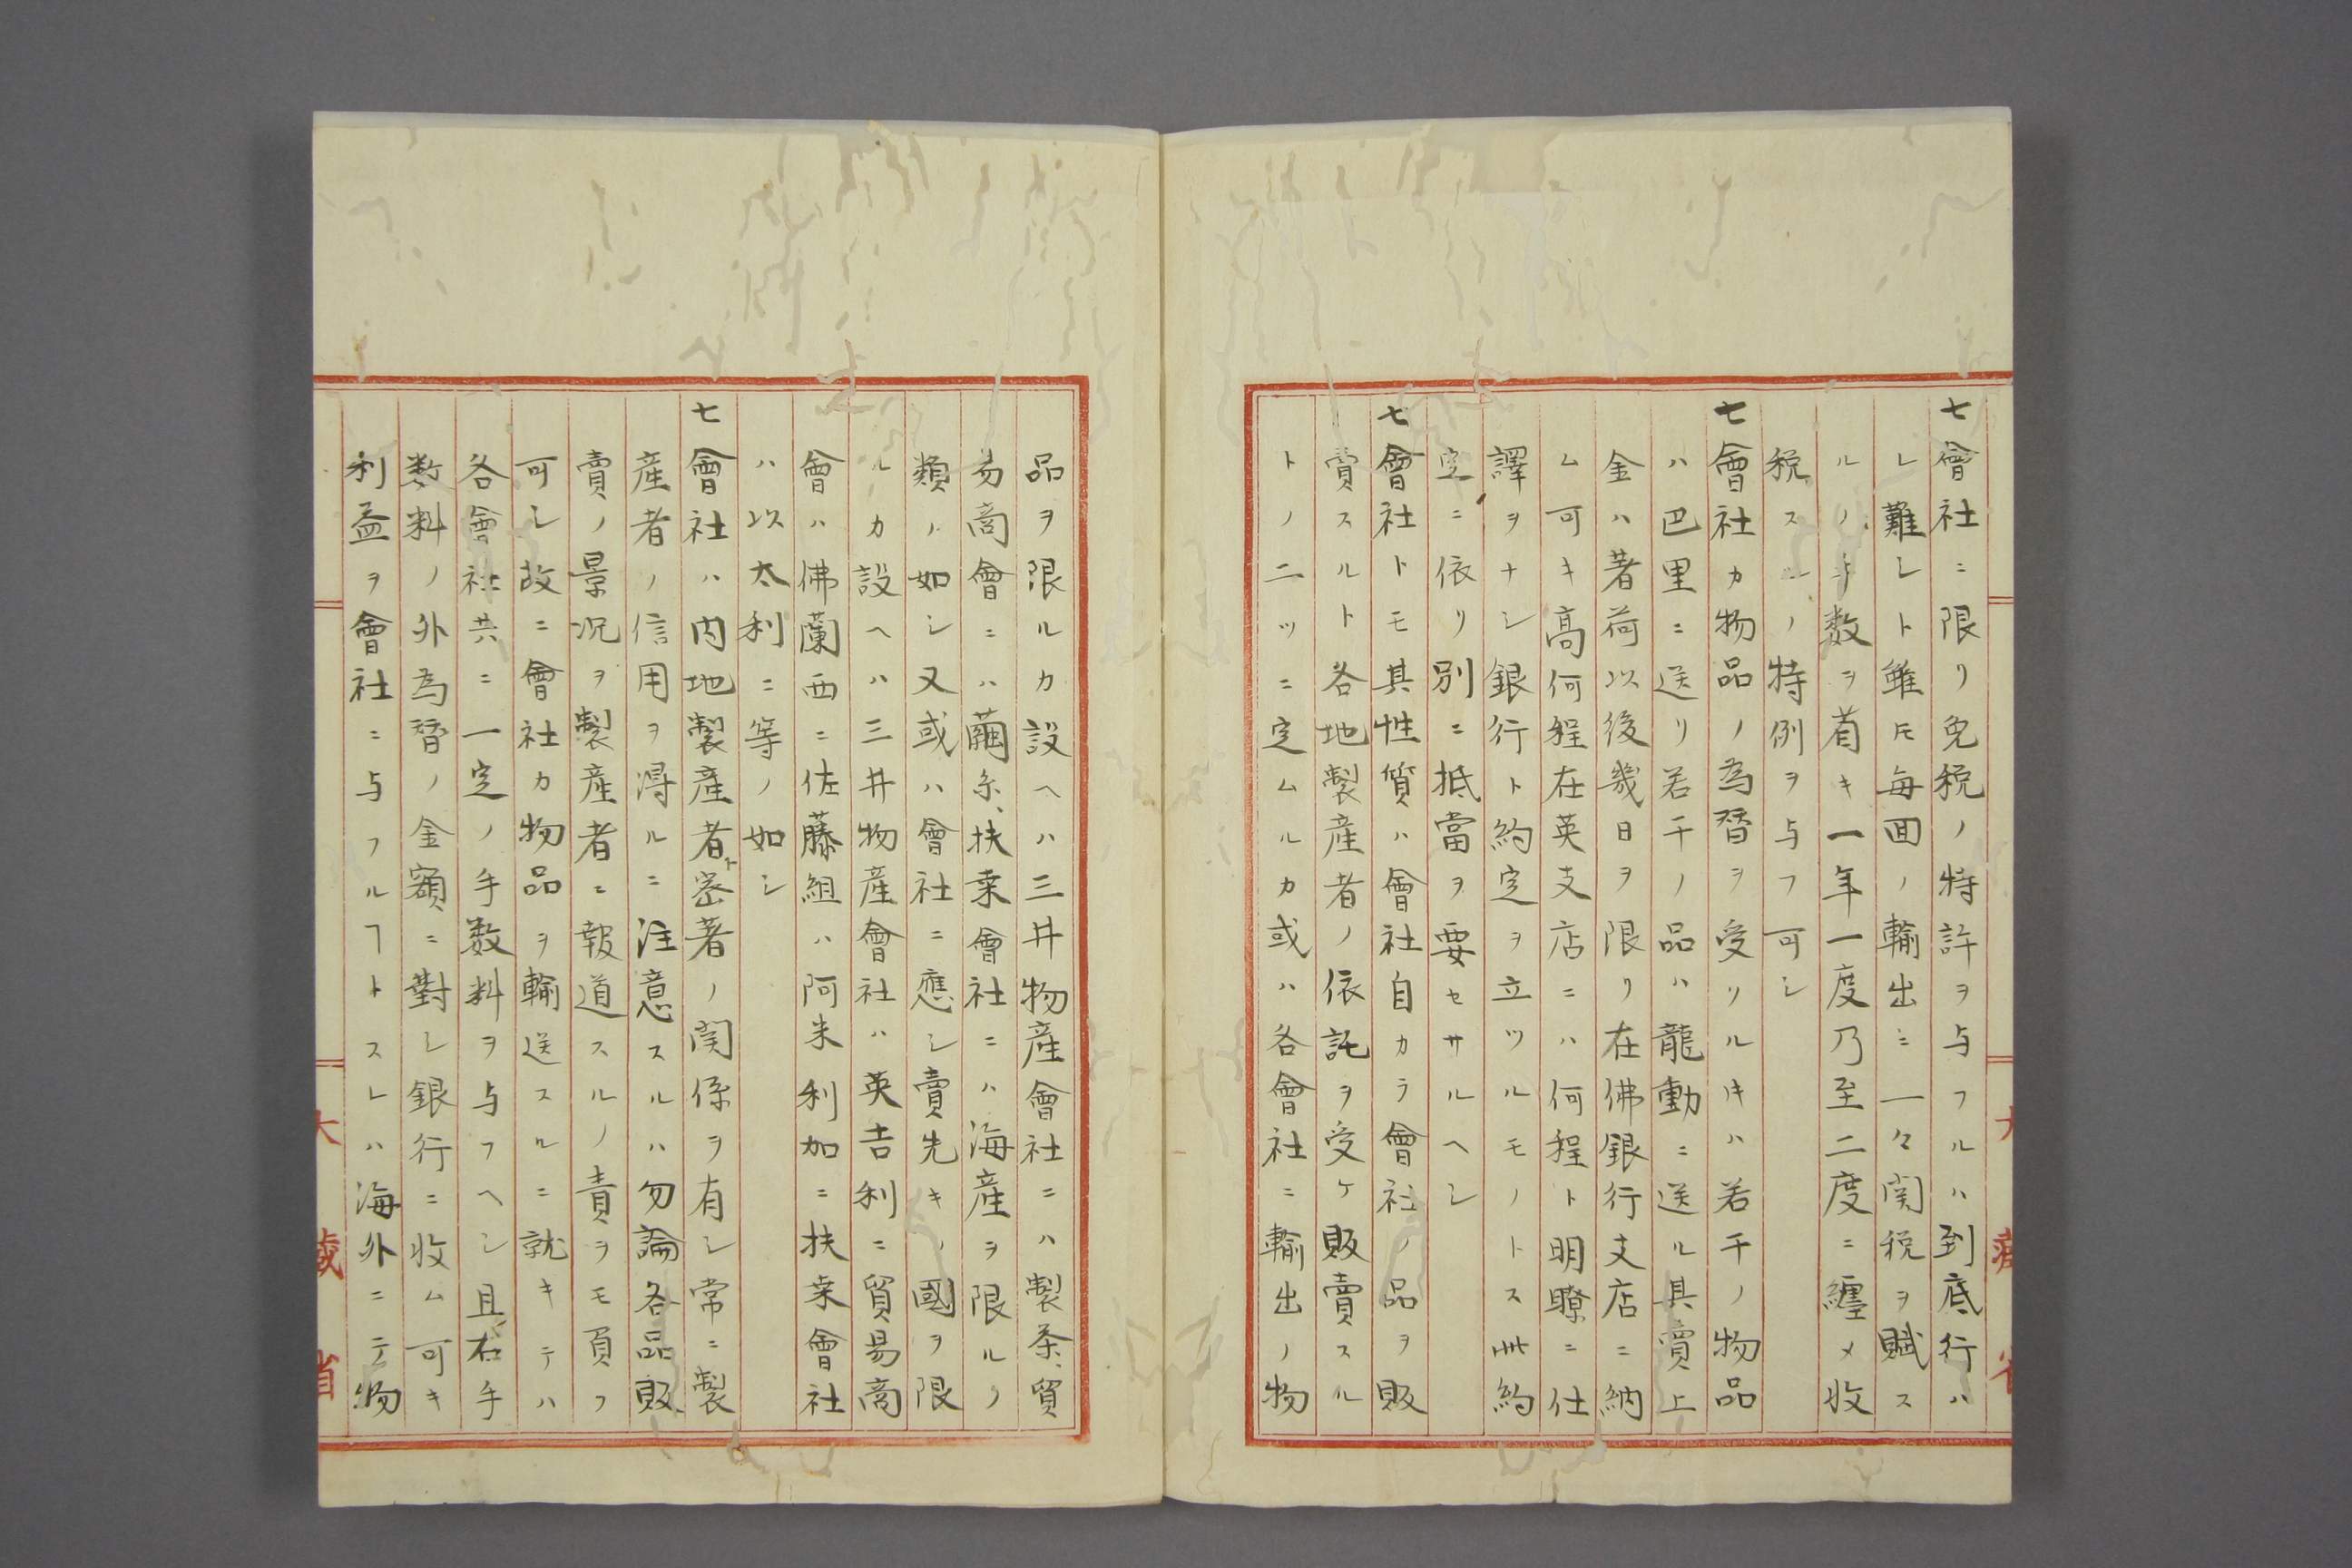 七會社ニ限リ免税ノ特許ヲ与フルハ到底行ハ
レ難シト雖𪜈毎回ノ輸出ミ一々関税ヲ賦ス
ルノ手数ヲ省キ一年一度乃至二度ニ纏メ收
税スルノ特例ヲ与フ可シ
七會社カ物品ノ為替ヲ受リルキハ若干ノ物品
ハ巴里ニ送リ若干ノ品ハ龍動ニ送ル其賣上
金ハ著荷以後幾日ヲ限リ在佛銀行支店ニ納
ム可キ高何程在英支店ニハ何程ト明瞭ニ仕
譯ヲナシ銀行ト約定ヲ立ツルモノトス此約
定ニ依リ別ニ抵當ヲ要セサルヘシ
七會社トモ其性質ハ會社自カラ會社ノ品ヲ販
賣スルト各地製産者ノ依託ヲ受ケ販賣スル
トノ二ツニ定ムルカ或ハ各會社ニ輸出ノ物
品ヲ限ルカ設ヘハ三井物産會社ニハ製茶、貿
易商會ニハ繭糸、扶桑會社ニハ海産ヲ限ルノ
類ノ如シ又或ハ會社ニ應シ賣先キノ國ヲ限
ルカ設ヘハ三井物産會社ハ英吉利ニ貿易商
會ハ佛蘭西ニ佐藤組ハ阿米利加ニ扶桑會社
ハ以太利ニ等ノ如シ
七會社ハ内地製産者ト密著ノ関係ヲ有シ常ニ製
産者ノ信用ヲ得ルニ注意スルハ勿論各品販
賣ノ景況ヲ製産者ニ報道スルノ責ヲモ負フ
可シ故ニ會社カ物品ヲ輸送スルニ就キテハ
各會社共ニ一定ノ手数料ヲ与フヘシ且右手
数料ノ外為替ノ金額ニ對シ銀行ニ收ム可キ
利益ヲ會社ニ与フルヿトスレハ海外ニテ物
大藏省